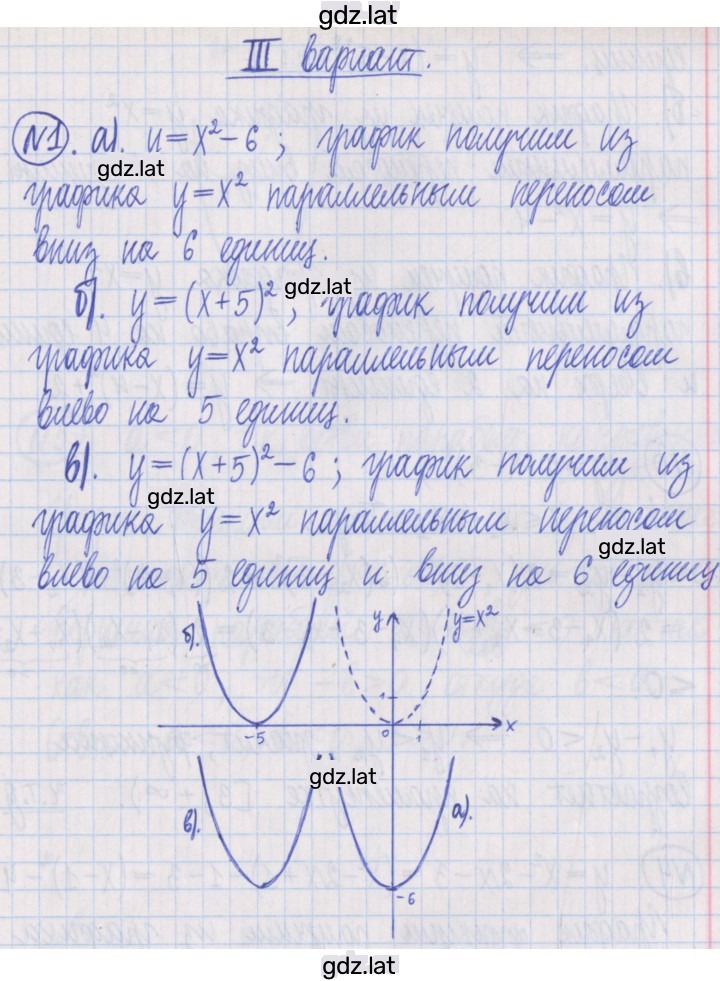 gdz.lat
III вариант.
№1. а). и = x² – 6 ; график получим из
gdz.lat
графика y = x² параллельным переносом
вниз на 6 единиц.
gdz.lat
б). y = (x+5)² ; график получим из
графика y = x² параллельным переносом
влево на 5 единиц.
в). y = (x+5)² – 6 ; график получим из
gdz.lat
графика y = x² параллельным переносом
gdz.lat
влево на 5 единиц и вниз на 6 единиц
б). y y=x²
1
-5 0 1 x
gdz.lat
в). а).
-6
gdz.lat